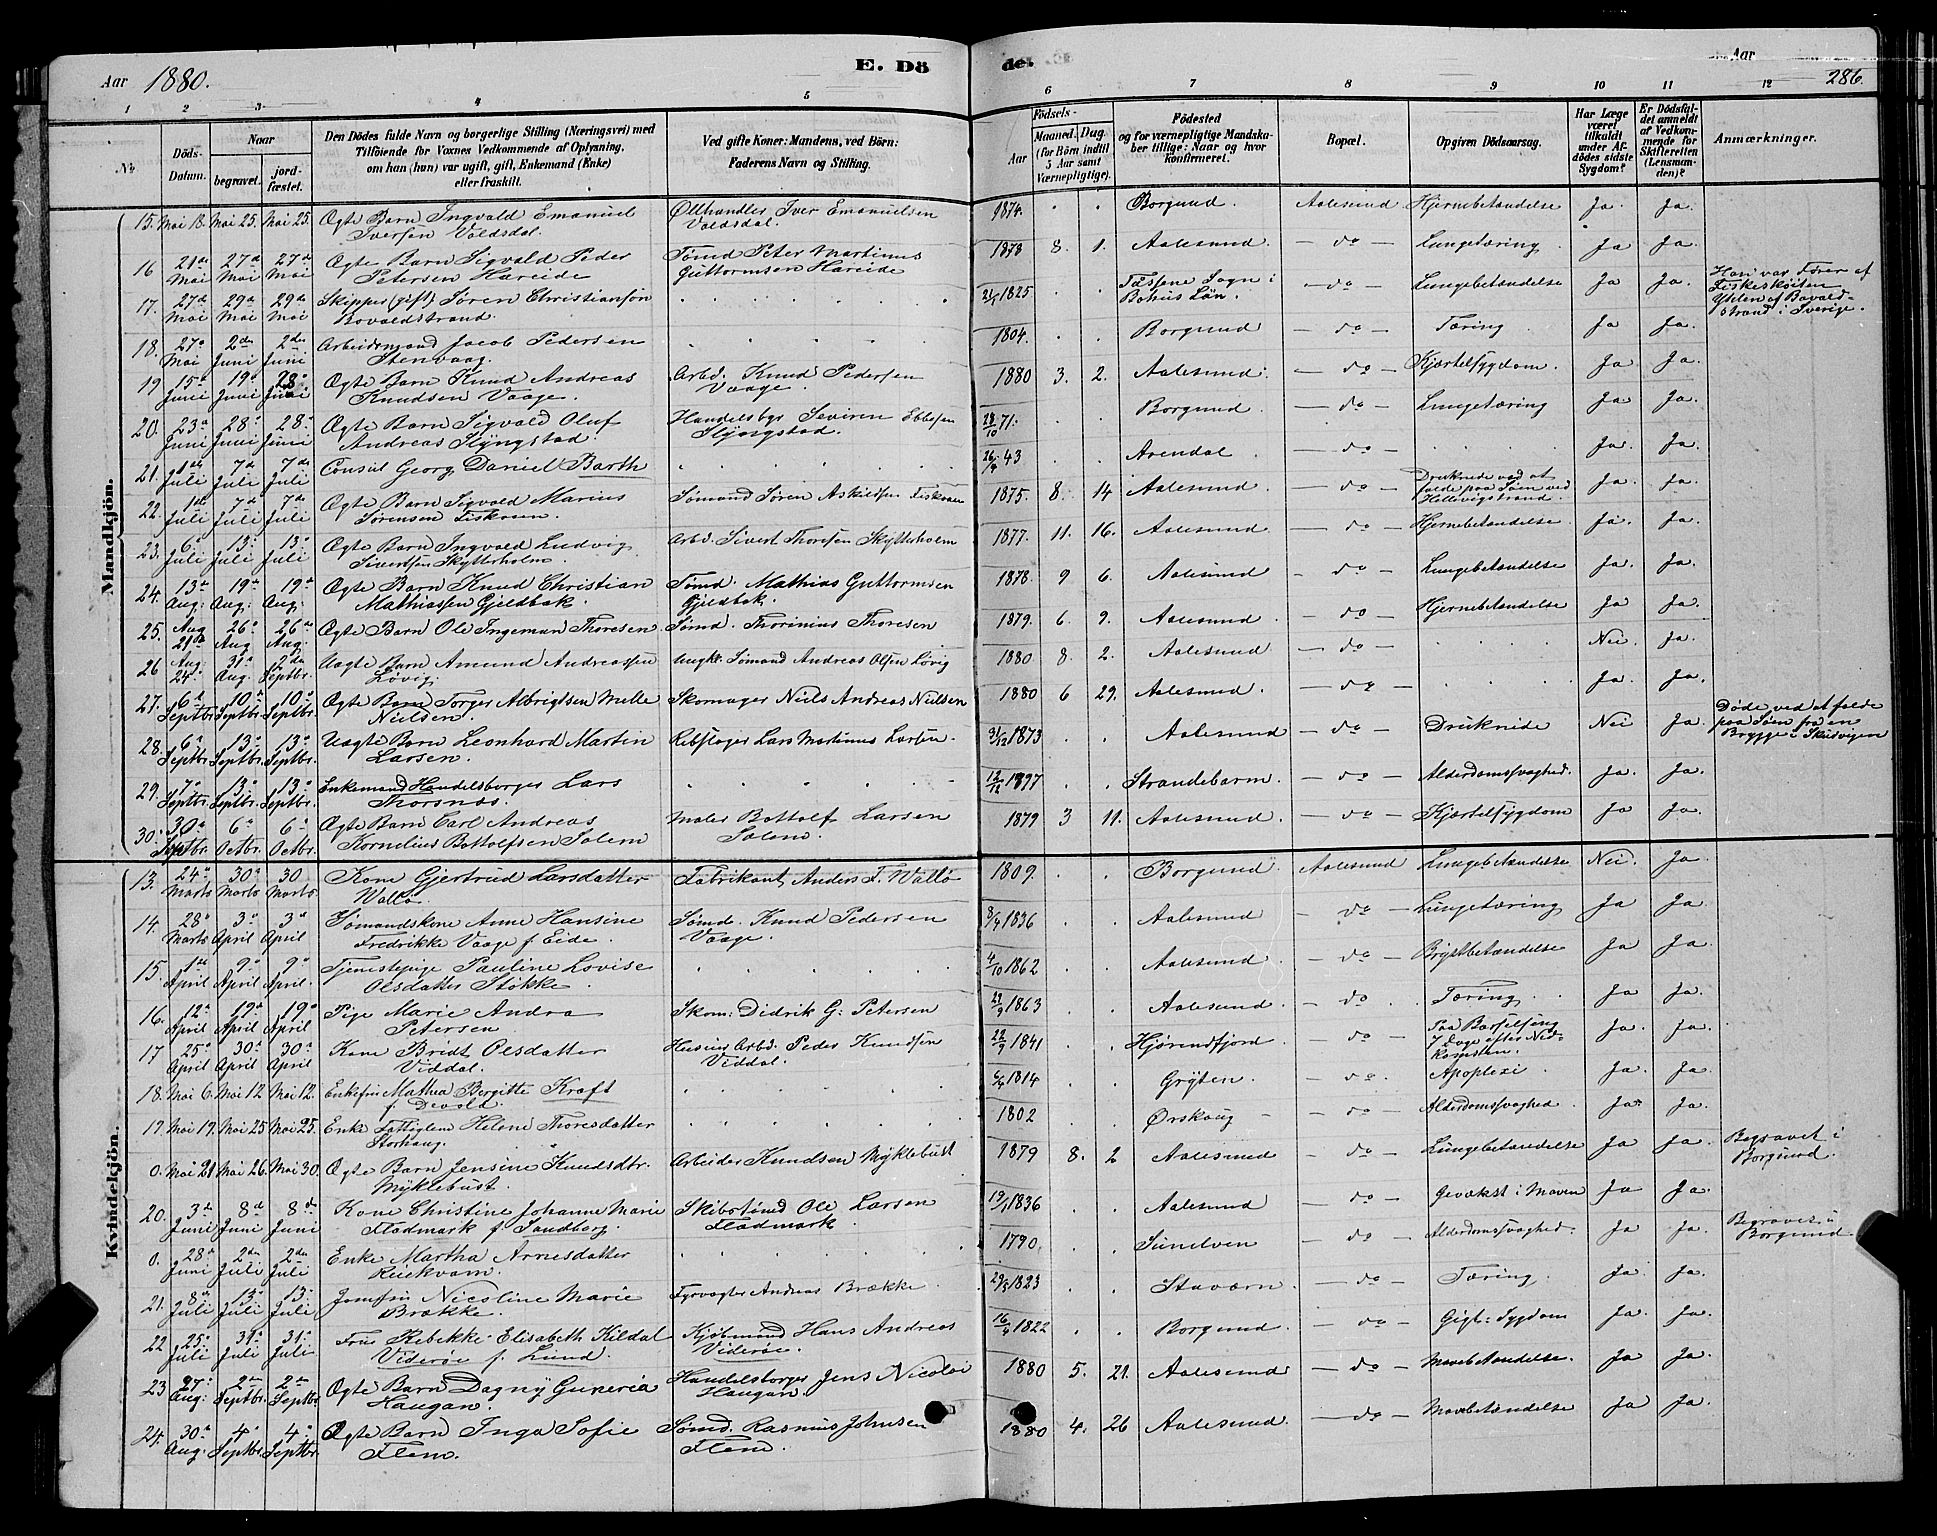 Aar 1880.
E. Dö de.
Aar
286.
1 2 3 4 5 6 7 8 9 10 11 12
No.
Döds-Datum.
Naar
begravet.
jordfæstet.
Den Dödes fulde Navn og borgerlige Stilling (Næringsvei) med
Tilföiende for Voxnes Vedkommende af Oplysning,
om han (hun) var ugift, gift, Enkemand (Enke)
eller fraskilt.
Ved gifte Koner: Mandens, ved Börn:
Faderens Navn og Stilling.
Födsels-
Aar
Maaned. Dag.
(for Börn indtil
5 Aar samt
Værnepligtige).
Födested
og for værnepligtige Mandskaber
tillige: Naar og hvor
konfirmeret.
Bopæl.
Opgiven Dödsaarsag.
Har Læge
været
tilkaldt
under Afdödes
sidste
Sygdom?
Er Dödsfaldet
anmeldt
af Vedkommende
for
Skifteretten
(Lensmanden)?
Anmærkninger.
Mandkjön.
15. Mai 18. Mai 25. Mai 25. Ægte Barn Ingvald Emanuel Iversen Valdsdal. Ølhandler Iver Emanuelsen Valdsdal. 1874. Borgund. Aalesund Hjernebetændelse Ja. Ja.
16 21de Mai 27de Mai 27de Mai Ægte Barn Sigvald Peder Petersen Hareide Sømd Peter Martinus Guttormsen Hareide 1878 8. 1. Aalesund. do Lungetæring Ja Ja.
17. 27de Mai 29de Mai 29de Mai Skipper (gift) Søren Christiansen Bovaldstrand. 1825 Tossene Sogn i Bohus Län. do Lungebetændelse Ja Ja. Han var Fører af Fiskeskøiten Ydden af Bovaldstrand i Sverige.
18. 27de Mai 2den Juni 2den Juni Arbeidsmand Jacob Pedersen Stenvaag. 1804. Borgund do Tæring Ja Ja.
19 15de Juni 19de Juni 28de Juni Ægte Barn Knud Andreas Knudsen Vaage. Arbd. Knud Pedersen Vaage. 1880 3. 2. Aalesund. do Kjertelsygdom. Ja Ja.
20. 23de Juni 28de Juni 28de Juni Ægte Barn Sigvald Oluf Andreas Slyngstad. Handelsbgr Severin Ebbesen Slyngstad. 28/10 71. Borgund. do Lungetæring Ja Ja.
21. 1ste Juli 7de Juli 7de Juli Consul Georg Daniel Barth 26/9 43 Arendal do Ja. Ja.
22. 1ste Juli 7de Juli 7de Juli Ægte Barn Sigvald Marius Sørensen Fiskeen. Sømand Søren Askildsen Fiskeen 1875. 8. 14 Aalesund do Druknede ved at falde paa Søen ved Hellevigstrand. Ja Ja.
23. 6te Juli 13de Juli 13de Juli Ægte Barn Ingvald Ludvig Sivertsen Skytterholm. Arbd. Sivert Thoresen Skytterholm 1877. 11. 16. Aalesund do Hjernebetændelse. Ja. Ja.
24. 13de Aug: 19de Aug: 19de Aug: Ægte Barn Knud Christian Mathiassen Gjeldbak. Sømd. Mathias Guttormsen Gjeldbak. 1878. 9 6. Aalesund do Lungebetændelse Ja. Ja.
25. Aug 21de 26de Aug 26de Aug: Ægte Barn Ole Ingeman Thoresen Sømd. Thorinius Thoresen 1879. 6. 9. Aalesund. do Hjernebetændelse Ja Ja.
26 Aug: 24de 31te Aug: 2den Septbr. Uægte Barn Amund Andreassen Løvig. Ungk: Sømand Andreas Olsen Løvig 1880 8 2. Aalesund do Nei Ja.
27. 6te Septbr. 10de Septbr. 10de Septbr. Ægte Barn Torger Albrigtsen Melle Nielsen. Skomager Niels Andreas Nielsen 1880 6 29. Aalesund. do Ja. Ja.
28. 6te Septbr. 13de Septbr. 13de Septbr. Uægte Barn Leonhard Martin Larsen. Rebslager Lars Martinus Larsen. 31/12 1873 Aalesund do Druknede Nei Ja. Døde ved at falde paa Søen fra en Brygge i Skudvigen
29. 7de Septbr. 13de Septbr. 13de Septbr. Enkemand Handelsborger Lars Thorsnæs. 12/12 1897 Strandebarm. do Alderdomssvaghed. Ja. Ja.
30. 30de Septbr. 6te Octbr. 6te Octbr. Ægte Barn Carl Andreas Kornelius Bottolfsen Solem. Maler Bottolf Larsen Solem. 1879 3 11. Aalesund. do Kjertelsygdom Ja Ja.
Kvindekjön.
13. 24de Marts 30de Marts 30 Marts Kone Gjertrud Larsdatter Wallø. Fabrikant Anders F. Wallø 1809. Borgund. Aalesund Lungebetændelse Nei. Ja.
14. 28de Marts 3de April 3de April Sømandskone Anne Hansine Fredrikke Vaage f Eide. Sømd. Knud Pedersen Vaage. 8/4 1836 Aalesund do Lungetæring Ja Ja.
15 1ste April 9de April 9de April. Tjenestepige Pauline Lovise Olsdatter Støkke. 4/10 1862 Aalesund do Brystbetændelse Ja Ja.
16. 12te April 19de April 19de April Pige Marie Andra Petersen. Skom: Didrik G: Petersen 29/9 1863 Aalesund do Tæring. Ja Ja
17 25de April 30de April 30de April Kone Bridt Olsdatter Viddal. Husmd Arbd. Peder Knudsen Viddal. 22/9 1841 Hjørendfjord do Paa Barselseng 7 Dage efter Nedkomsten. Ja. Ja.
18. Mai 6. Mai 12 Mai 12. Enkefru Mathea Bergitte Kraft f. Devold. 1814 Gryten. do Apoplexi Ja. Ja.
19. Mai 19. Mai 25 Mai 25. Enke Fattiglem Helene Thoresdatter Storhaug. 1802 Ørskoug do Alderdomssvaghed Ja. Ja.
0. Mai 21. Mai 26. Mai 30. Ægte Barn Jensine Knudsdtr. Myklebust. Arbeider Knudsen Myklebust 1879 8. 2 Aalesund do Lungebetændelse Ja Ja Begravet i Borgund.
20. 3de Juni 8de Juni 8de Juni Kone Christine Johanne Marie Fladmark f. Sandberg. Skibstømd Ole Larsen Fladmark. 19/1 1836 Aalesund do Gevækst i Maven Ja Ja.
0. 28de Juni 2den Juli 2den Juli Enke Martha Arnesdatter Reiekvam. 1790. Sunelven do Alderdomssvaghed. Ja Ja. Begravet i Borgund.
21. 8de Juli 13de Juli 13de Juli Jomfru Nicoline Marie Brække. Fyrvogter Andreas Brække 29/5 1823 Staværn. do Tæring. Ja. Ja.
22 25de Juli 31te Juli 31te Juli Frue Rebekke Elisabeth Kildal Viderøe f. Lund. Kjøbmand Hans Andreas Viderøe. 16/4 1822 Borgund. do Gigt: Sygdom Ja Ja.
23 27de Aug: 2den Septbr. 2den Septbr. Ægte Barn Dagny Guneria Haugan. Handelsborger Jens Nicolai Haugan. 1880 5. 21. Aalesund do Mavebetændelse. Ja Ja.
24. 30de Aug: 4de Septbr 4de Septbr. Ægte Barn Inga Sofie Flem. Sømd. Rasmus Johnsen Flem. 1880 4. 26 Aalesund. do Mavebetændelse Ja Ja.